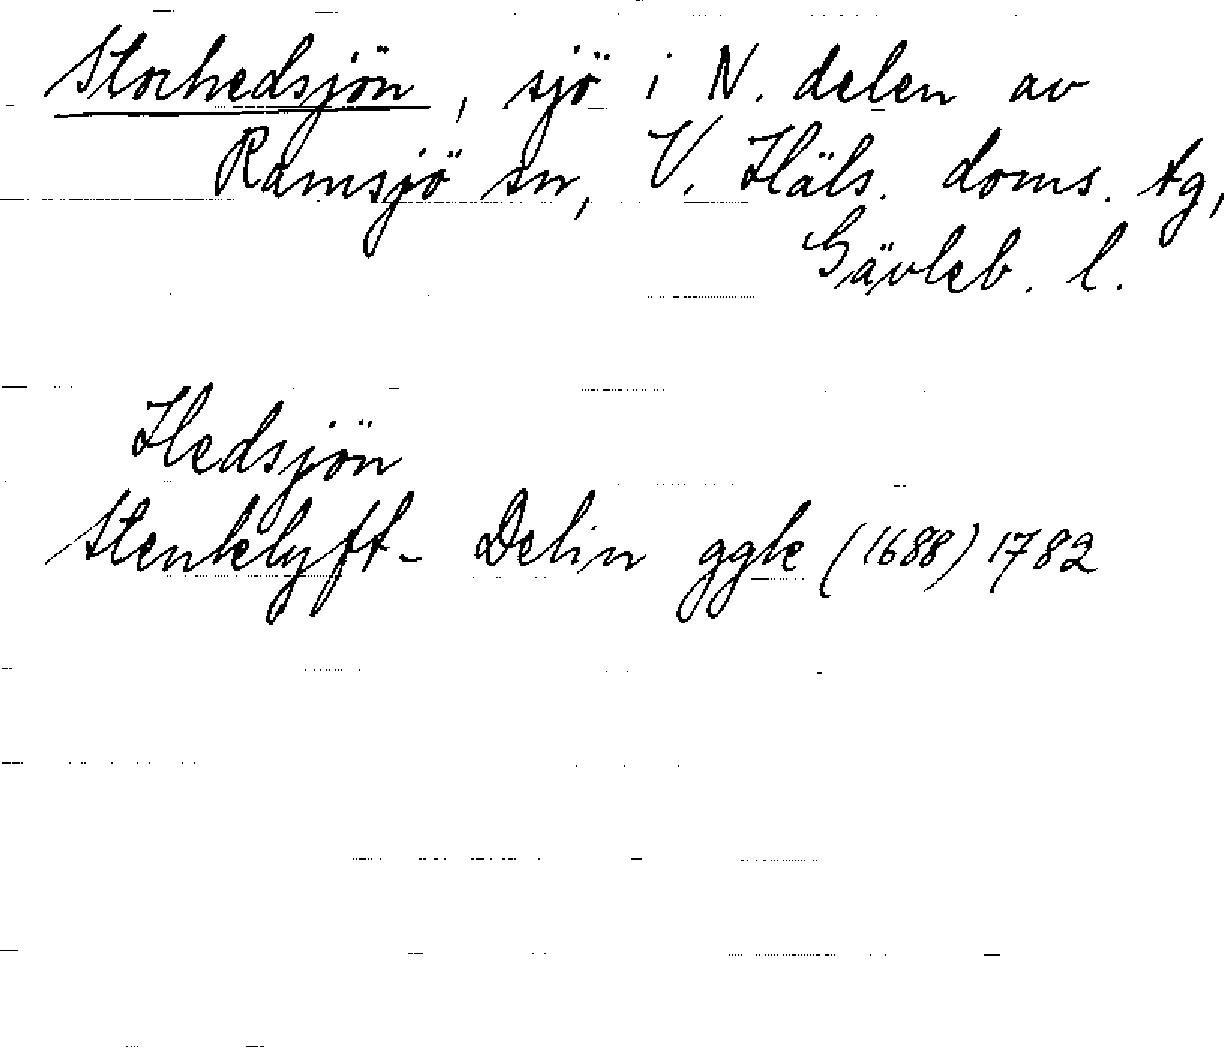 Storhedsjön, sjö i N. delen av
Ramsjö sn, V. Häls. doms. tg,
Gävleb. l.
Hedsjön
Stenklyft- Delin ggk (1688) 1782